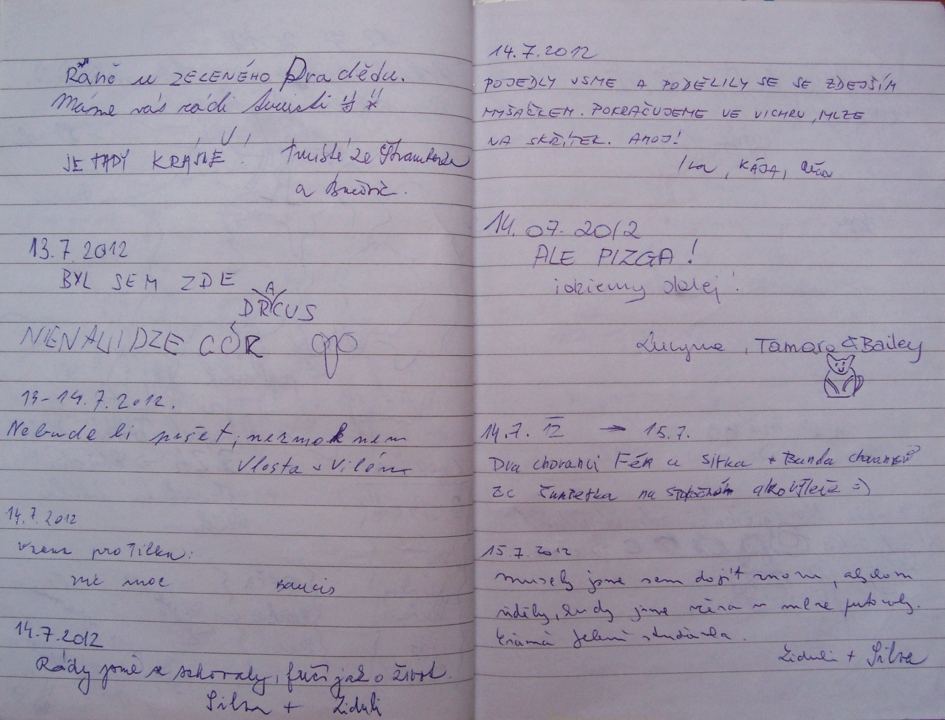 Ráně u ZELENÉHO Pradědu.
Máme vás rádi
JE TADY KRÁSNĚ!
a
13.7.2012
BYL SEM ZDE
NIENAWIDZE GÓR
13-14.7.2012.
Nebude li pršet, nezmoknem
Vlasta + Vilém
14.7.2012
pro Tilka:
nic moc
14.7.2012
Rády jsme se schovaly, fučí jak o život.
Silva + Ziduli
14.7.2012
POJEDLY JSME A PODĚLILY SE SE ZDEJŠÍM
MYŠÁČKEM. POKRAČUJEME VE VICHRU, MLZE
NA SKŘÍTEK. AHOJ!
Iva, KÁJA,
14.07.2012
ALE PIZGA!
idziemy dalej!
Lucyna, Tamara & Bailey
14.7.12 → 15.7.
Dva chovanci Fék a Sitka + Banda
ze na :)
15.7.2012
Musely jsme sem dojít znovu, abychom
viděly, kudy jsme včera v mlze putovaly.
Krásná Jelení studánka.
Ziduli + Silva